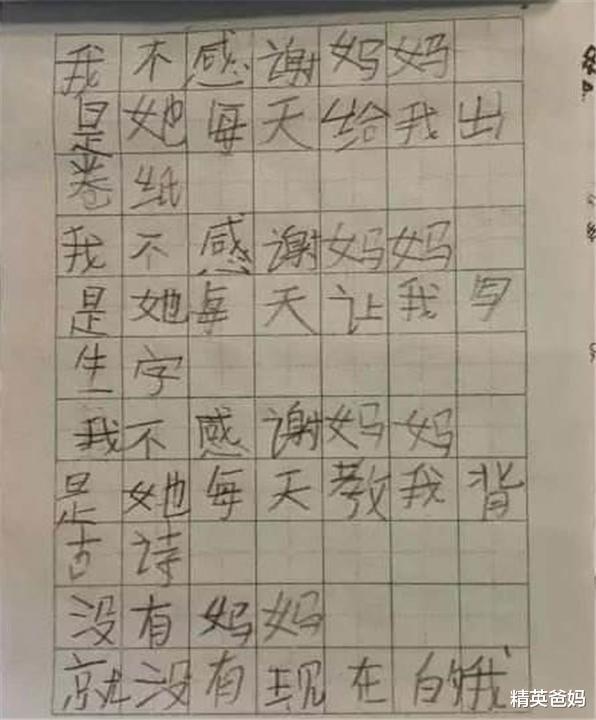 我不感谢妈妈
是她每天给我出
卷纸
我不感谢妈妈
是她每天让我写
生字
我不感谢妈妈
是她每天教我背
古诗
没有妈妈
就没有现在的我
精英爸妈